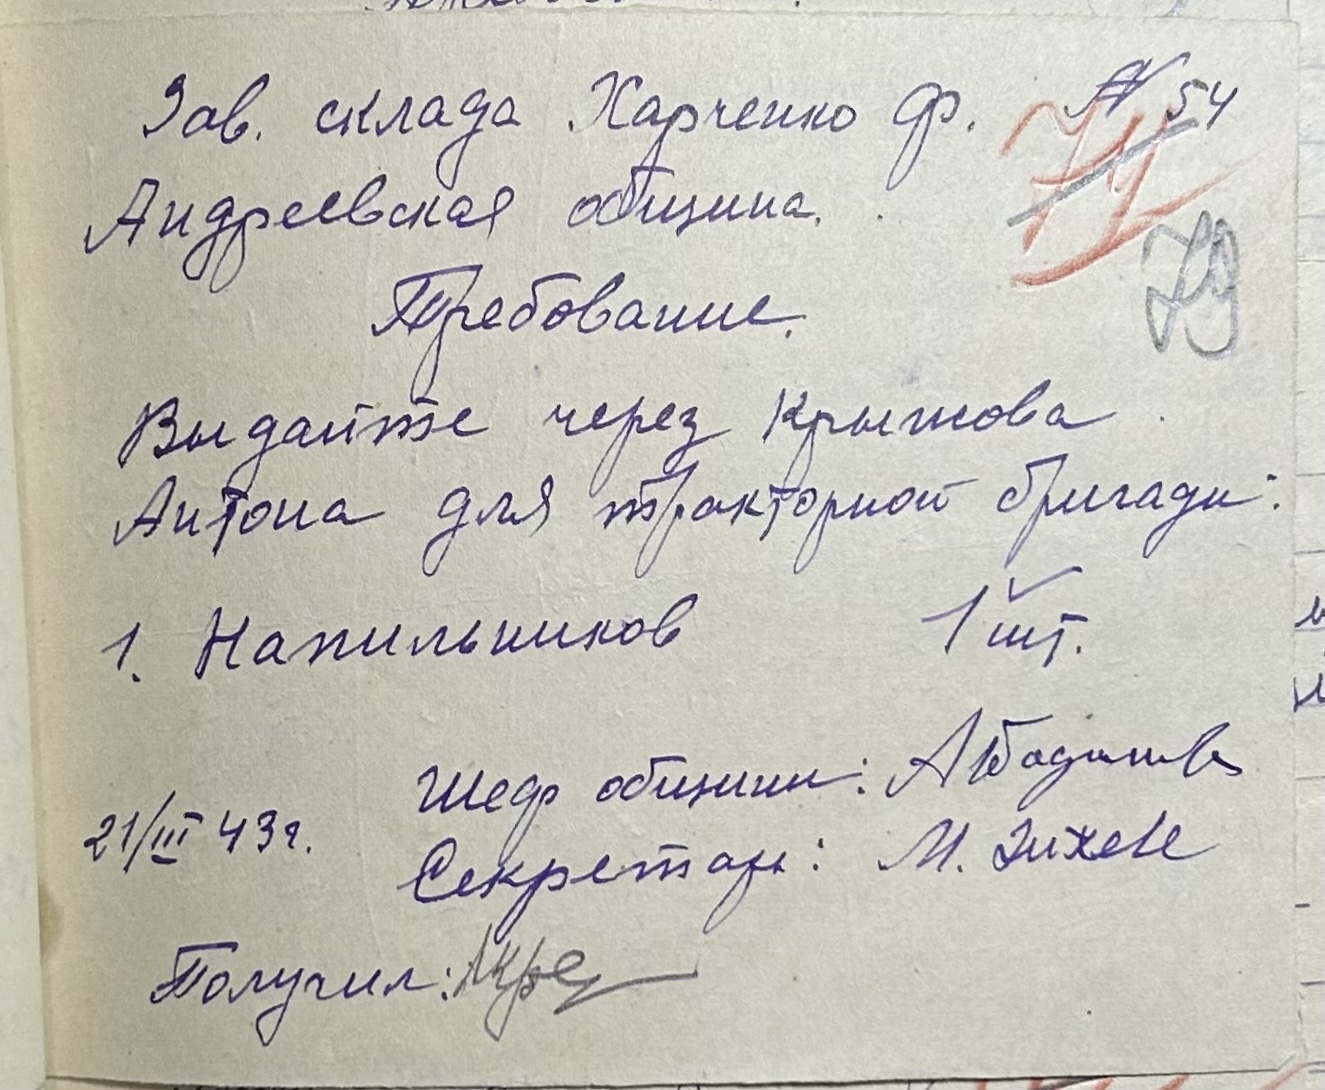 Зав. склада Харченко Ф. № 54
71
Андреевская община.
79
Требование.
Выдайте через Крыжова
Антона для тракторной бригады:
1. Напильников 1 шт.
Шеф общины:
21/III 43 г.
Секретарь: М.
Получил: